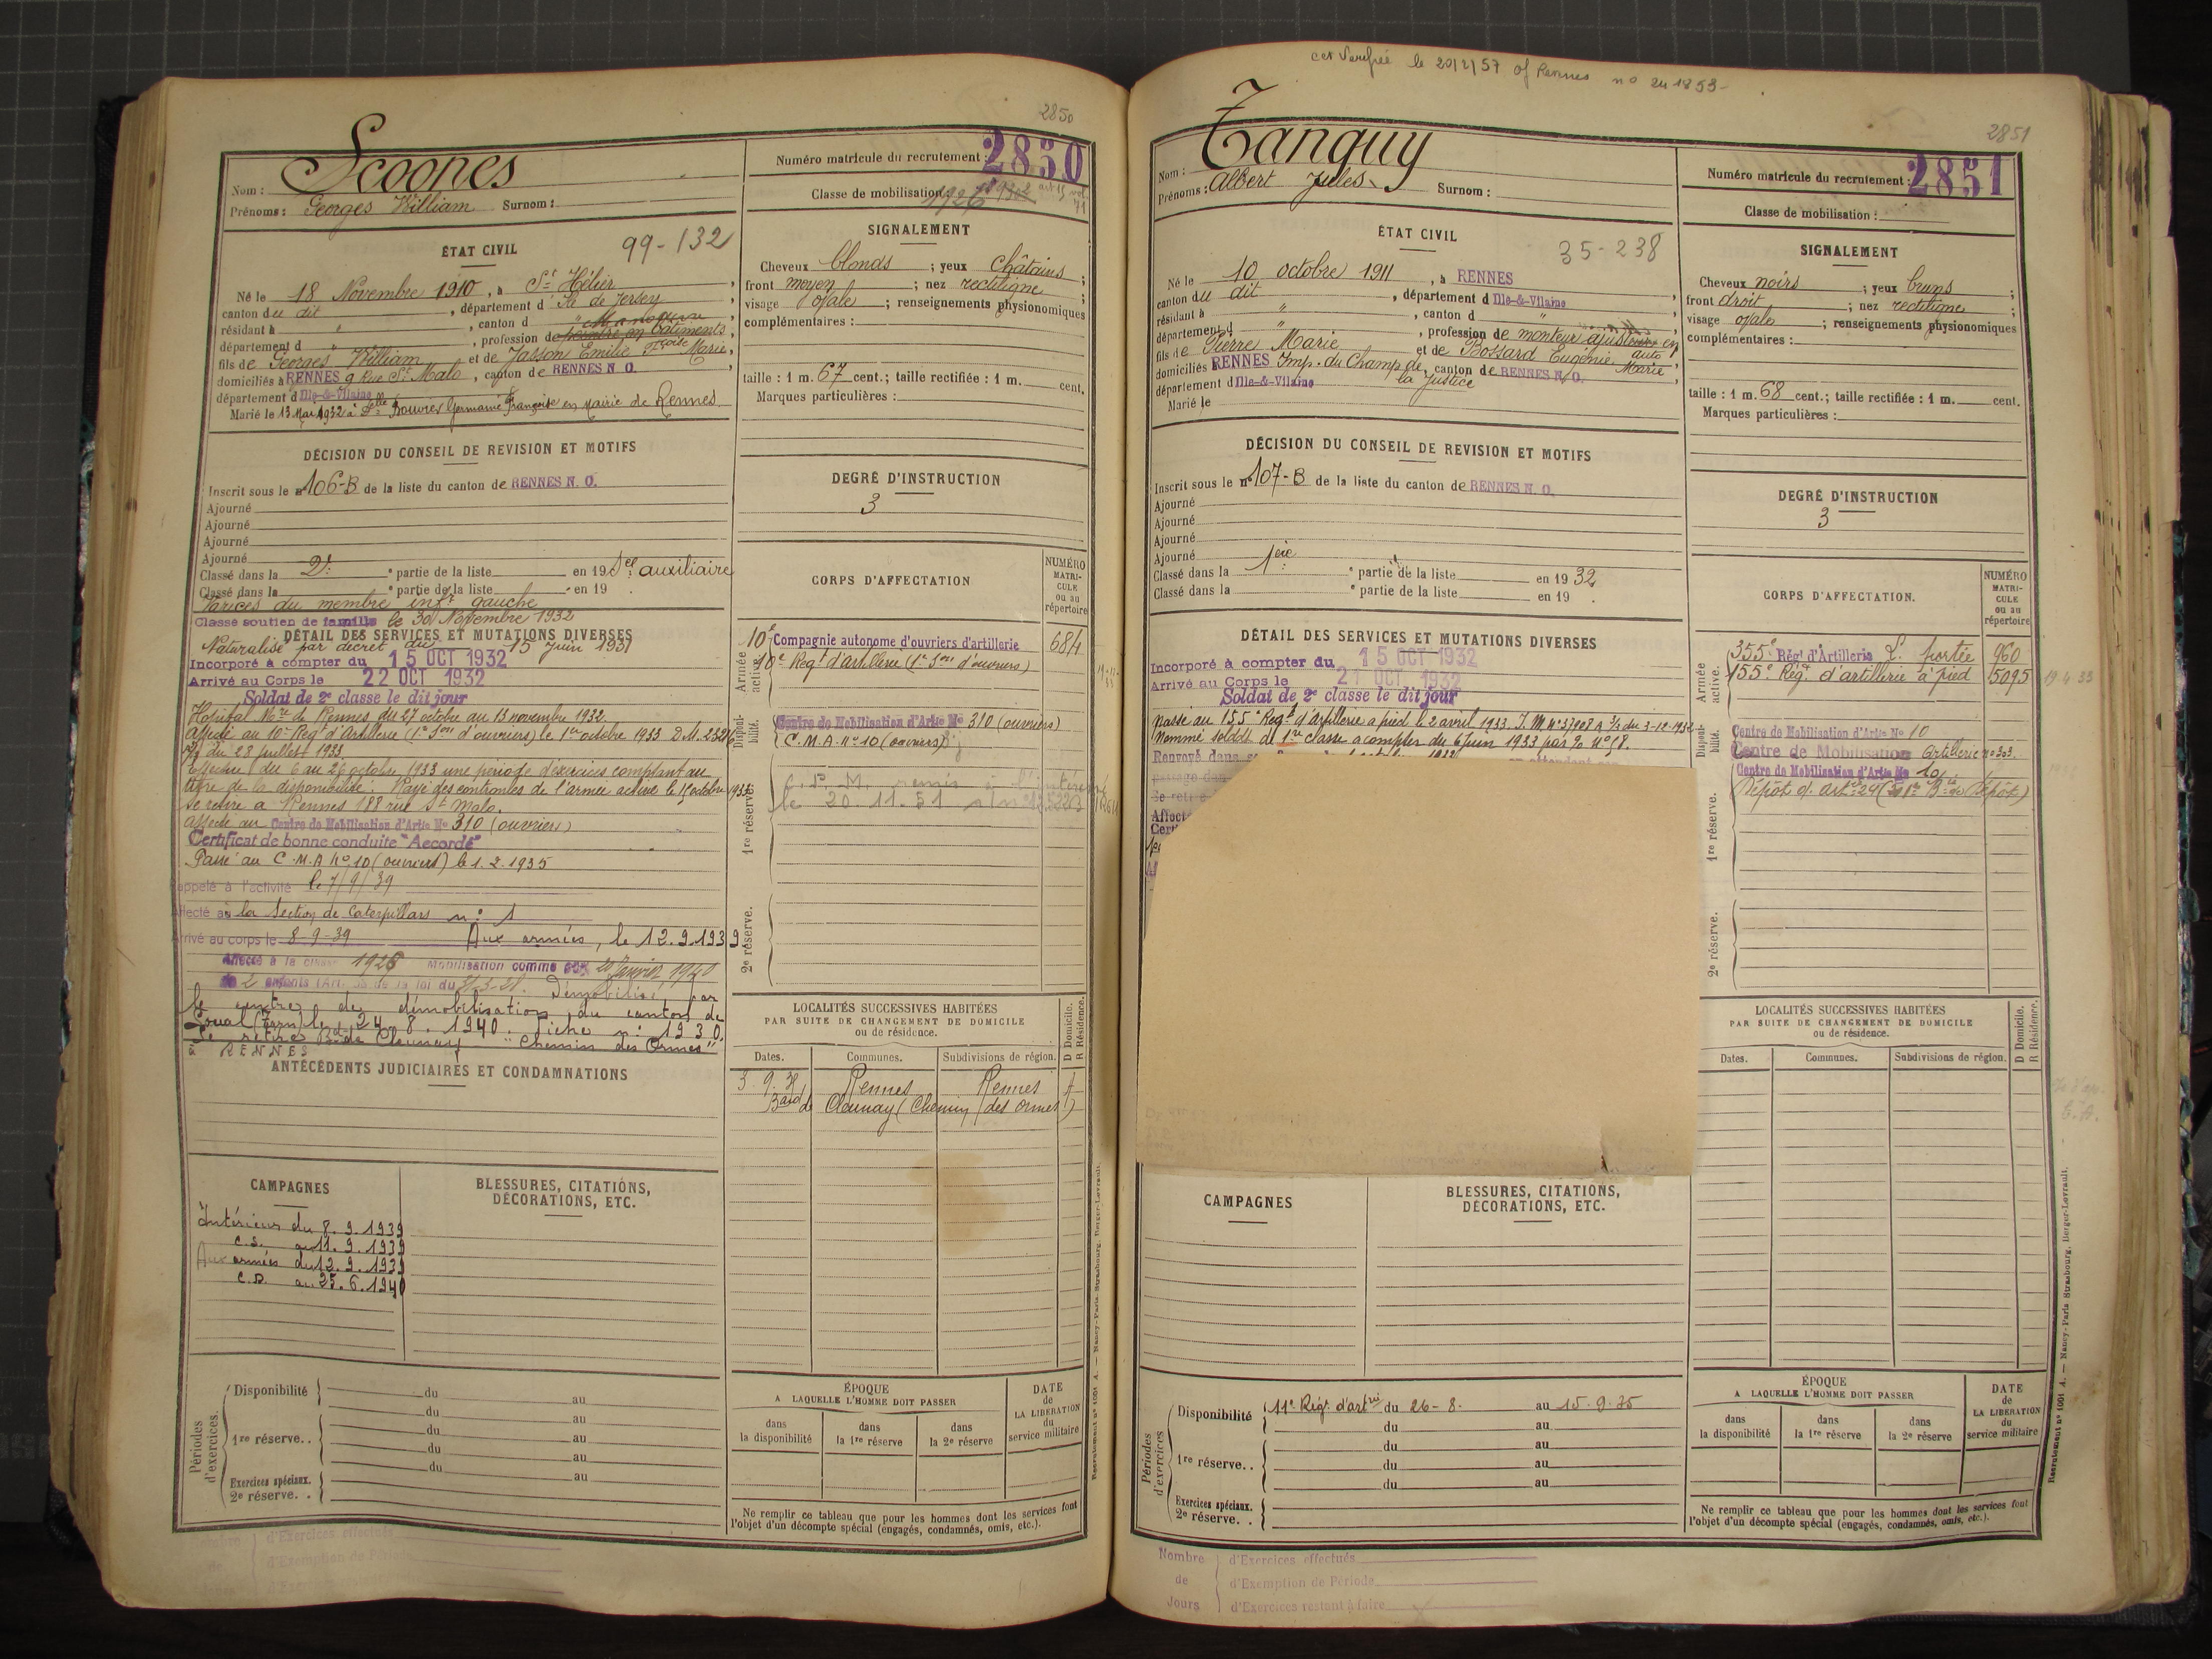 2850
Scoones
Nom :
Prénoms : Georges William Surnom :
Numéro matricule du recrutement : 2850
Classe de mobilisation 1926
ÉTAT CIVIL
99-132
Né le 18 Novembre 1910, à St Hélier,
canton du dit, département d' Ile de Jersey,
résidant à " , canton d " Manœuvre
département d " , profession de peintre en bâtiments,
fils de Georges William et de Jasson Emilie Fçoise Marie,
domiciliés à RENNES 9 Rue St Malo, canton de RENNES N. O.
département d Ille-&-Vilaine
Marié le 13 Mai 1932 à Delle Bouvres Germaine Françoise en Mairie de Rennes
SIGNALEMENT
Cheveux blonds ; yeux châtains ;
front moyen ; nez rectiligne ;
visage ovale ; renseignements physionomiques
complémentaires :
taille : 1 m. 67 cent.; taille rectifiée : 1 m. cent.
Marques particulières :
DÉCISION DU CONSEIL DE REVISION ET MOTIFS
Inscrit sous le n° 106-B de la liste du canton de RENNES N. O.
Ajourné
Ajourné
Ajourné
Ajourné
Classé dans la 2e partie de la liste en 19 Sce auxiliaire
Classé dans la partie de la liste en 19 .
Varices du membre infr gauche
Classé soutien de famille le 30 Novembre 1932
DEGRÉ D'INSTRUCTION
3
DÉTAIL DES SERVICES ET MUTATIONS DIVERSES
Naturalisé par décret du 15 Juin 1931
Incorporé à compter du 15 OCT 1932
Arrivé au Corps le 22 OCT 1932
Soldat de 2e classe le dit jour
Hôpital Mre de Rennes du 27 octobre au 13 novembre 1932.
Affecté au 10e Regt d'Artillerie (1e Son d'ouvriers) le 1er octobre 1933 D.M. 23216
du 28 Juillet 1933
Effectue du 6 au 26 octobre 1933 une période d'exercices comptant au
titre de la disponibilité. Rayé des contrôles de l'armée active le 15 octobre 1933
Se retire à Rennes 188 rue St Malo.
Affecté au Centre de Mobilisation d'Artie No 310 (ouvriers)
Certificat de bonne conduite "Accordé"
Passé au C.M.A No 10 (ouvriers) le 1.2.1935
Rappelé à l'activité le 7/9/39
Affecté à la Section de Caterpillars n° 1
Arrivé au corps le 8-9-39 Aux armées, le 12.9.1939
Affecté à la classe 1926 Mobilisation comme père 20 Janvier 1940
de 2 enfants (Art. 58 de la loi du 31-3-28. Démobilisé par
le centre de démobilisation du canton de
Soual (Tarn) le 24.8.1940. Fiche n° 1930.
Se retire Bard de Cleunay "Chemin des Ormes"
à RENNES
CORPS D'AFFECTATION
NUMÉRO MATRICULE ou au répertoire
Armée active.
10e Compagnie autonome d'ouvriers d'artillerie 684
10e Regt d'artillerie (1e Son d'ouvriers)
Disponibilité.
Centre de Mobilisation d'Artie No 310 (ouvriers)
C.M.A. No 10 (ouvriers)
1re réserve.
le 20.11.51
2e réserve.
ANTÉCÉDENTS JUDICIAIRES ET CONDAMNATIONS
LOCALITÉS SUCCESSIVES HABITÉES
PAR SUITE DE CHANGEMENT DE DOMICILE
ou de résidence.
D Domicile. R Résidence.
Dates. Communes. Subdivisions de région.
3.9.34 Rennes Rennes
Bard de Cleunay (Chemin des Ormes)
CAMPAGNES
Intérieur du 8.9.1939
C.S. au 11.9.1939
Aux armées du 12.9.1939
C.D. au 25.6.1940
BLESSURES, CITATIONS,
DÉCORATIONS, ETC.
Périodes d'exercices.
Disponibilité du au
du au
1re réserve.. du au
du au
du au
Exercices spéciaux.
2e réserve. .
ÉPOQUE
A LAQUELLE L'HOMME DOIT PASSER
dans la disponibilité
dans la 1re réserve
dans la 2e réserve
DATE de LA LIBÉRATION du service militaire
Ne remplir ce tableau que pour les hommes dont les services font
l'objet d'un décompte spécial (engagés, condamnés, omis, etc.).
d'Exercices effectués
d'Exemption de Période
Recrutement n° 1001 A. — Nancy-Paris-Strasbourg, Berger-Levrault.
cet Verifié le 20/2/57 of Rennes no 241853-
2851
Tanguy
Nom :
Prénoms : Albert Jules Surnom :
Numéro matricule du recrutement : 2851
Classe de mobilisation :
ÉTAT CIVIL
35-238
Né le 10 octobre 1911, à RENNES
canton du dit, département d Ille-&-Vilaine
résidant à " , canton d "
département d " , profession de monteur ajusteur en auto
fils de Pierre Marie et de Bossard Eugénie Marie,
domiciliés à RENNES Imp. du Champ de la Justice, canton de RENNES N. O.
département d Ille-&-Vilaine
Marié le
SIGNALEMENT
Cheveux noirs ; yeux bruns ;
front droit ; nez rectiligne ;
visage ovale ; renseignements physionomiques
complémentaires :
taille : 1 m. 68 cent.; taille rectifiée : 1 m. cent.
Marques particulières :
DÉCISION DU CONSEIL DE REVISION ET MOTIFS
Inscrit sous le n° 107-B de la liste du canton de RENNES N. O.
Ajourné
Ajourné
Ajourné
Ajourné
Classé dans la 1ère partie de la liste en 19 32
Classé dans la partie de la liste en 19 .
DEGRÉ D'INSTRUCTION
3
DÉTAIL DES SERVICES ET MUTATIONS DIVERSES
Incorporé à compter du 15 OCT 1932
Arrivé au Corps le 21 OCT 1932
Soldat de 2e classe le dit jour
Passé au 155e Regt d'artillerie à pied le 2 avril 1933. I.M. n° 37208 A 3/2 du 3-12-1932
Nommé soldat de 1re classe à compter du 6 Juin 1933 par % No 18.
Renvoyé dans ses
Affecté
CORPS D'AFFECTATION.
NUMÉRO MATRICULE ou au répertoire
Armée active.
355e Régt d'Artillerie L. portée 960
155e Régt d'artillerie à pied 5095
19.4.33
Disponibilité.
Centre de Mobilisation d'Artie No 10
Centre de Mobilisation Artillerie n° 303.
Centre de Mobilisation d'Artie No 10
1re réserve.
Dépôt d'Artie 29 (1e Bie de Dépôt)
2e réserve.
LOCALITÉS SUCCESSIVES HABITÉES
PAR SUITE DE CHANGEMENT DE DOMICILE
ou de résidence.
D Domicile. R Résidence.
Dates. Communes. Subdivisions de région.
CAMPAGNES
BLESSURES, CITATIONS,
DÉCORATIONS, ETC.
Périodes d'exercices
Disponibilité 11e Régt d'artrie du 26-8. au 15.9.35
du au
1re réserve. . du au
du au
du au
Exercices spéciaux.
2e réserve. .
ÉPOQUE
A LAQUELLE L'HOMME DOIT PASSER
dans la disponibilité
dans la 1re réserve
dans la 2e réserve
DATE de LA LIBÉRATION du service militaire
Ne remplir ce tableau que pour les hommes dont les services font
l'objet d'un décompte spécial (engagés, condamnés, omis, etc.).
Nombre de Jours
d'Exercices effectués
d'Exemption de Période
d'Exercices restant à faire
Recrutement n° 1001 A. — Nancy-Paris-Strasbourg, Berger-Levrault.